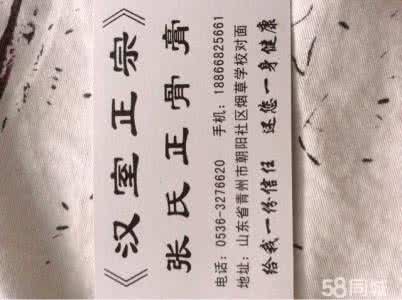 《汉室正宗》
张氏正骨膏
电话：0536-3276620 手机：18866825661
地址：山东省青州市朝阳社区烟草学校对面
给我一份信任 还您一身健康
58同城